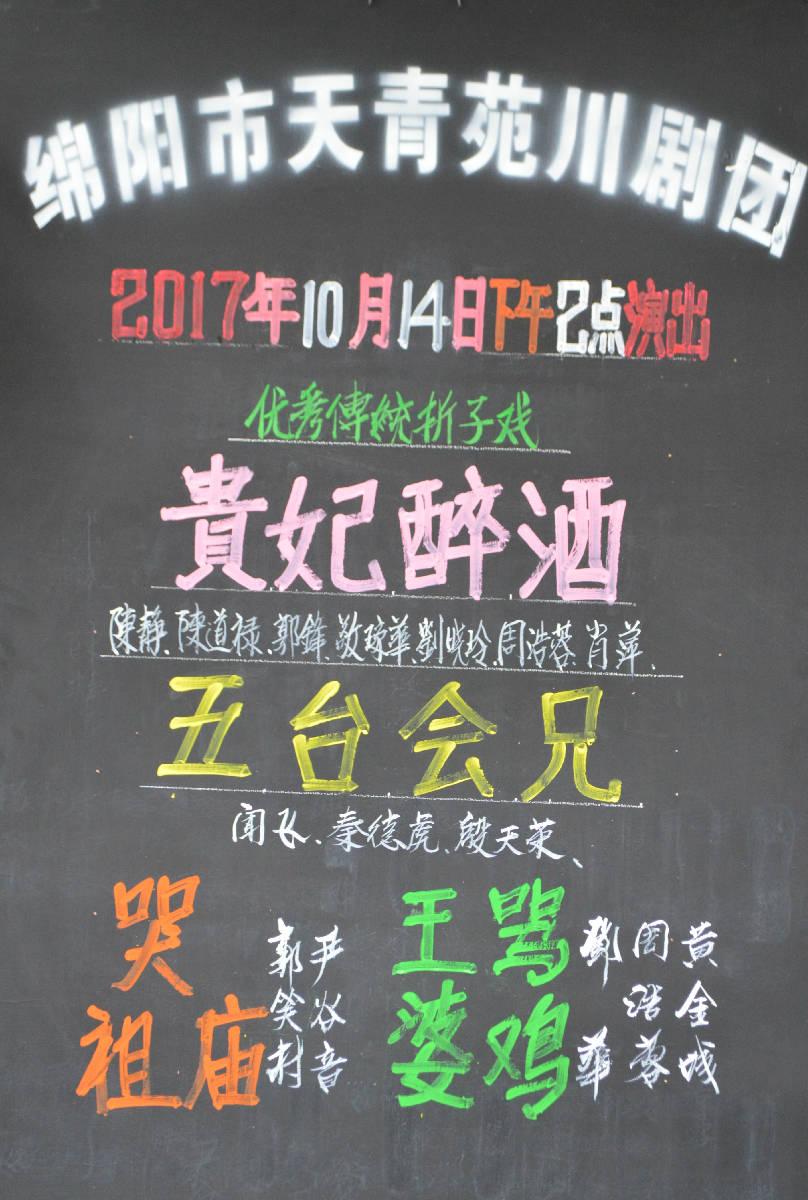 绵阳市天青苑川剧团
2017年10月14日下午2点演出
优秀傳統折子戏
貴妃醉酒
陳靜、陳道禄、郭鋒、敬琼華、劉晓玲、周浩蓉、肖萍、
五台会兄
闻飞、秦德虎、殷天荣、
哭祖庙
尹谷音
郭笑村
王婆骂鸡
黄金城
周浩蓉
鄧華